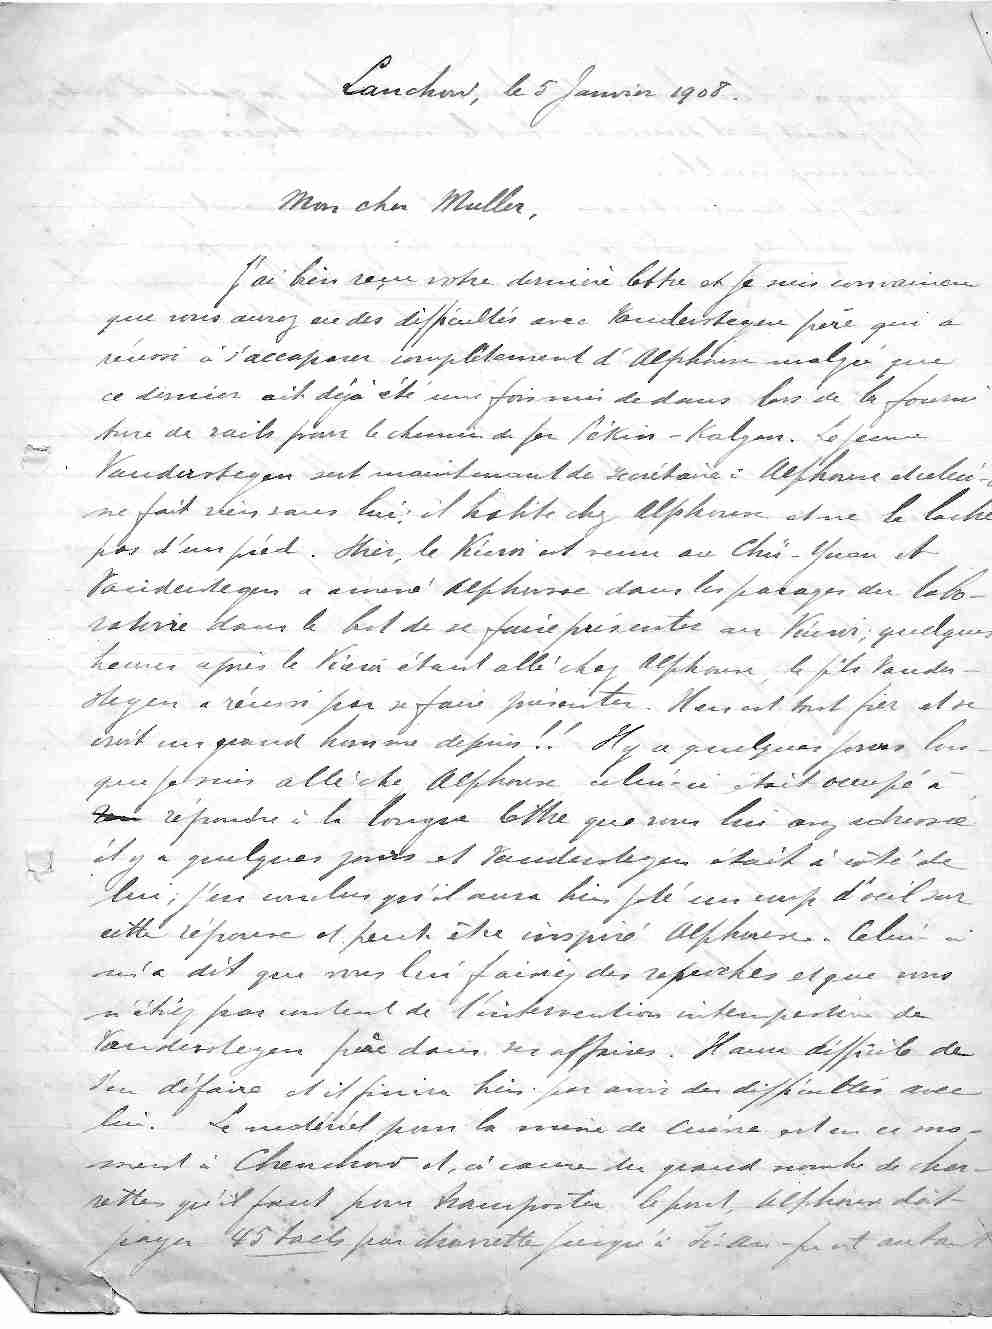 Lanchow, le 5 Janvier 1908.
Mon cher Muller,
J'ai bien reçu votre dernière lettre et je suis convaincu
que vous aurez eu des difficultés avec Vanderstegen père qui a
réussi à s'accaparer complètement d'Alphonse malgré que
ce dernier ait déjà été une fois mis dedans lors de la fourni
ture de rails pour le chemin de fer Pékin-Kalgan. Le jeune
Vanderstegen sert maintenant de secrétaire à Alphonse et celui-ci
ne fait rien sans lui; il habite chez Alphonse et ne le lâche
pas d'un pied. Hier, le Viceroi est venu au Chü-Yuan et
Vanderstegen a amené Alphonse dans les parages du labo-
ratoire dans le but de se faire présenter au Viceroi; quelques
heures après le Viceroi étant allé chez Alphonse, le fils Vander-
stegen a réussi par se faire présenter. Il en est tout fier et se
croit un grand homme depuis!! Il y a quelques jours lors-
que je suis allé che Alphonse celui-ci était occupé à
répondre à la longue lettre que vous lui avez adressée
il y a quelques jours et Vanderstegen était à côté de
lui; j'en conclus qu'il aura bien jeté un coup d'oeil sur
cette réponse et peut être inspiré Alphonse. Celui-ci
m'a dit que vous lui faisiez des reproches et que vous
n'étiez pas content de l'intervention intempestive de
Vanderstegen père dans ses affaires. Il aura difficile de
s'en défaire et il finira bien par avoir des difficultés avec
lui. Le matériel pour la mine de cuivre est en ce mo-
ment à Chenchow et, à cause du grand nombre de char-
rettes qu'il faut pour transporter le pont, Alphonse doit
payer 45 taels par charrette jusqu'à Si-an-fu et autant